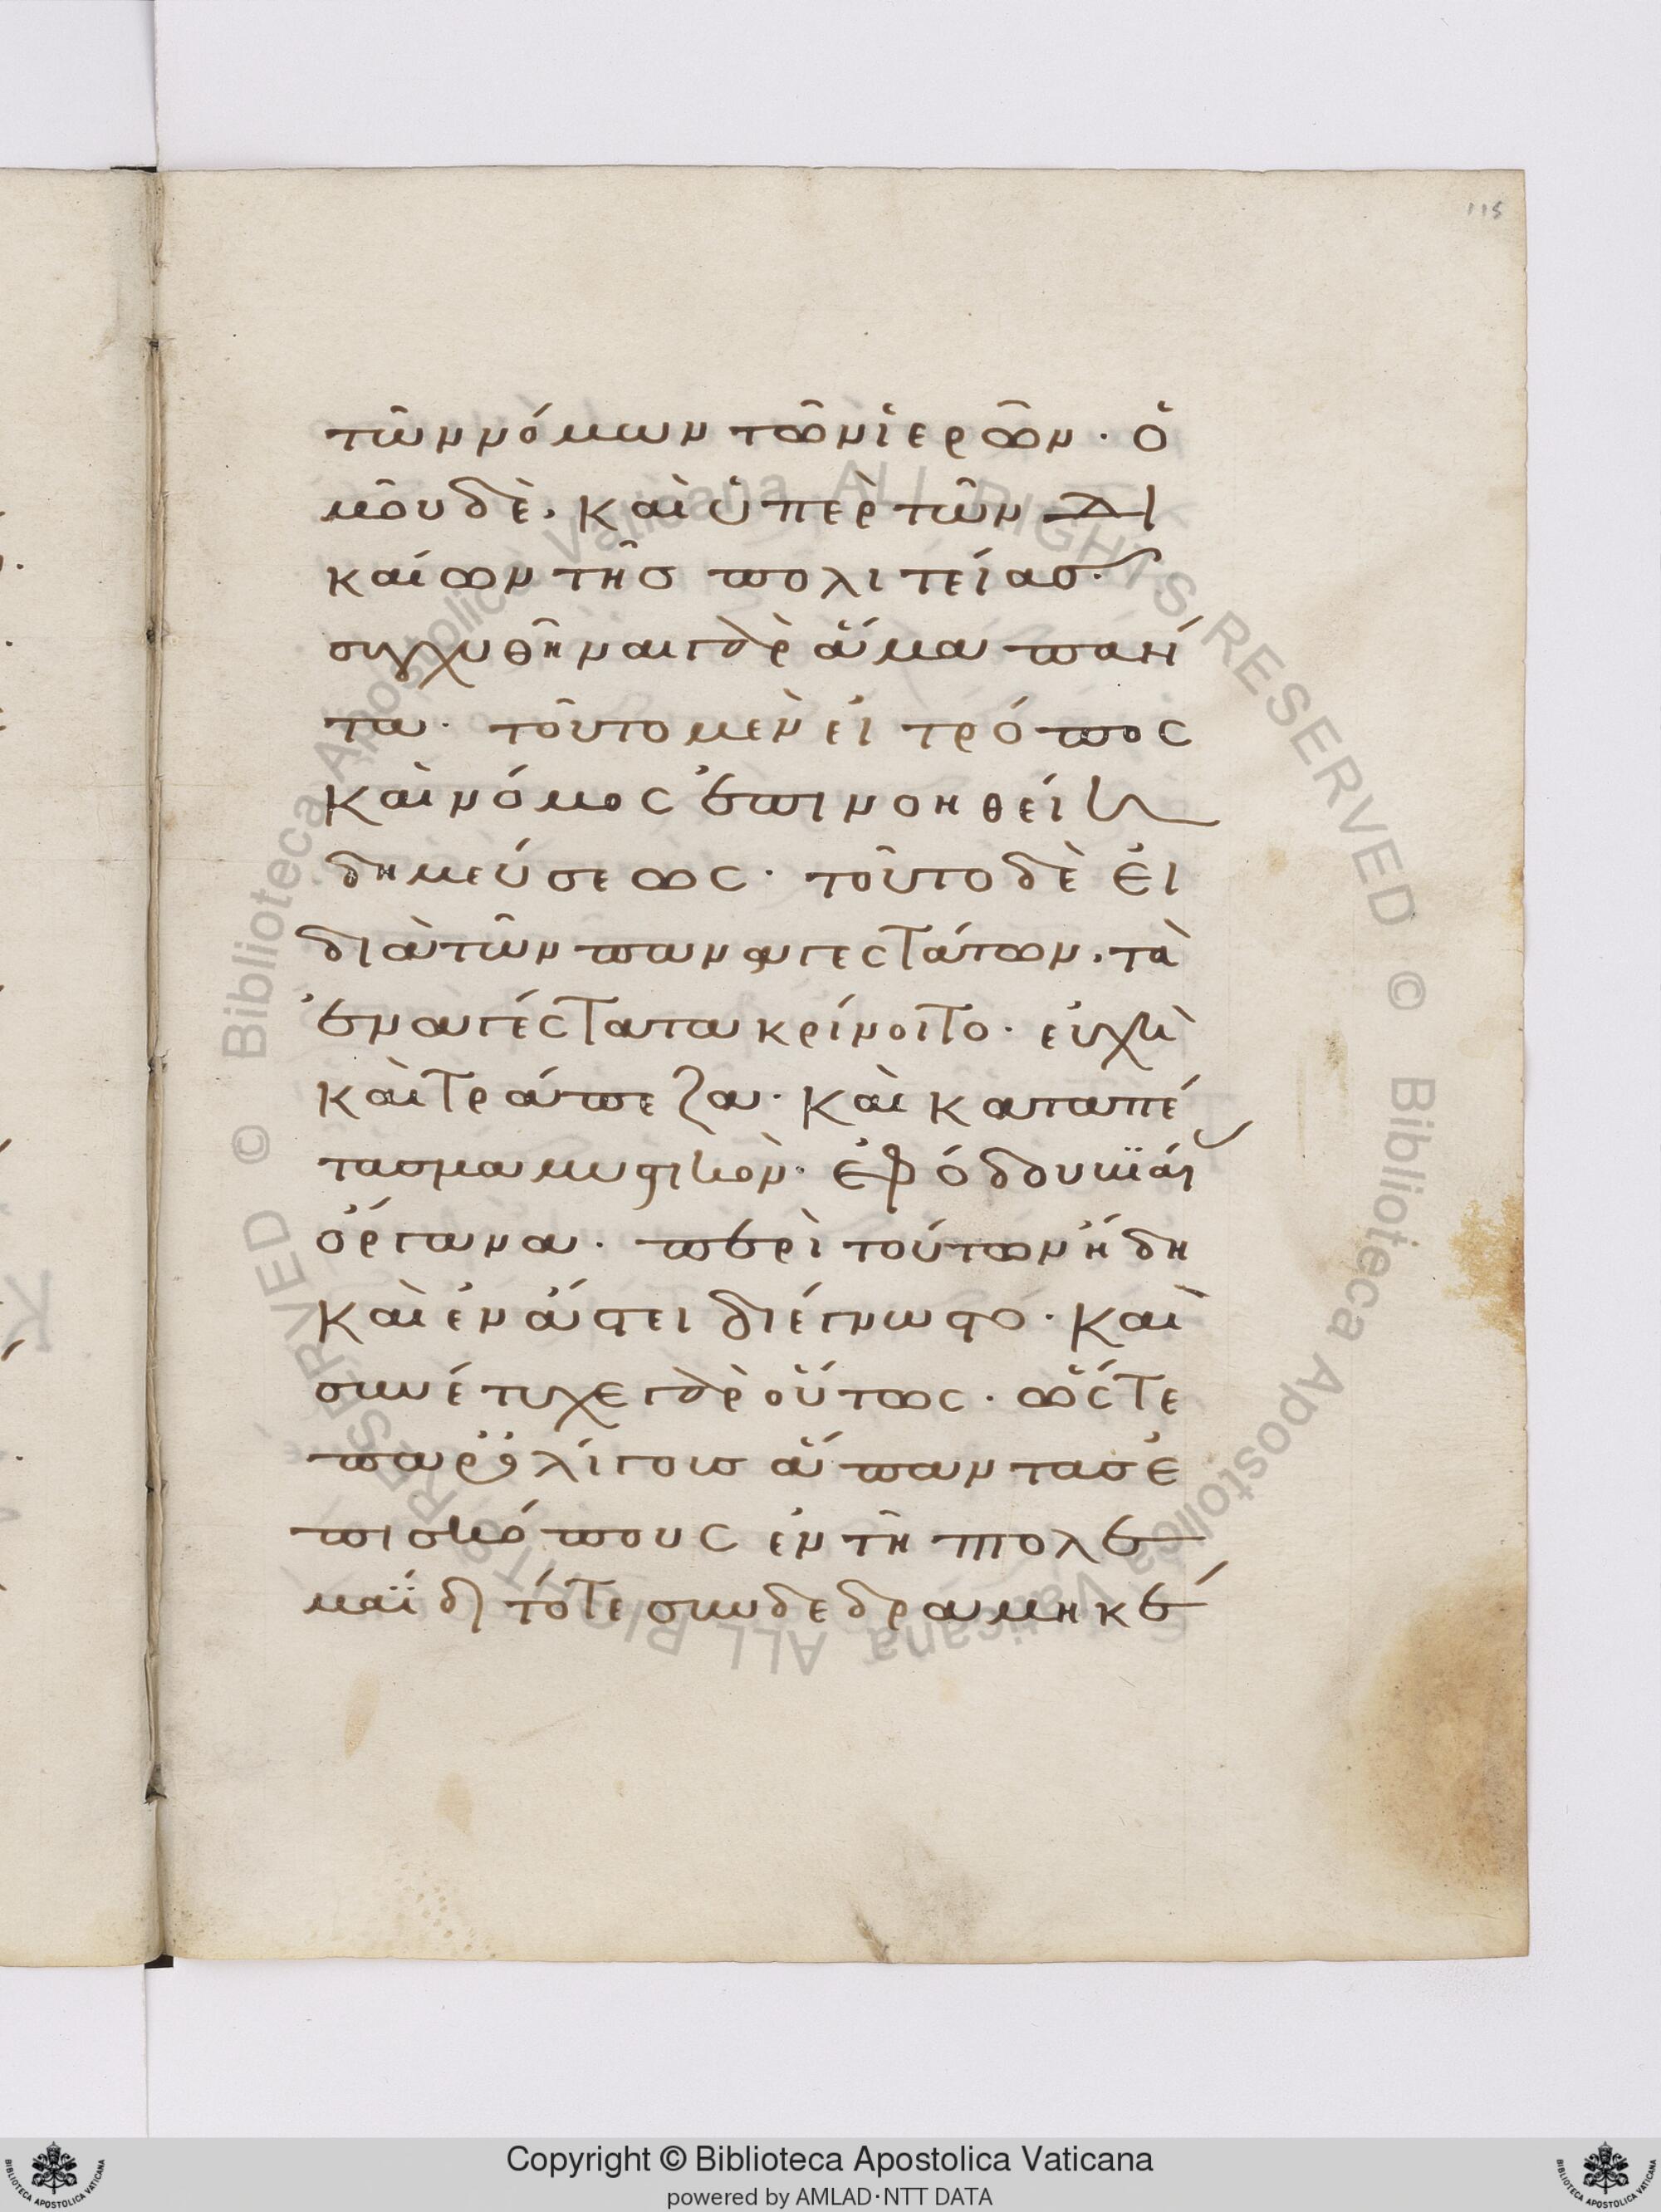 115
τῶν νόμων τῶν ἱερῶν· ὁ
μοῦ δὲ· καὶ ὑπὲρ τῶν δι
καίων τῆς πολιτείας·
συγχυθῆναι γὰρ ἅμα πάν
τα· τοῦτο μὲν εἰ τρόπος
καὶ νόμος ἐπινοηθείη
δημεύσεως· τοῦτο δὲ εἰ
διὰ τῶν παναγεστάτων· τὰ
ἐναγέστατα κρίνοιτο· εὐχὴ
καὶ τράπεζα· καὶ καταπέ
τασμα μυστικὸν· ἐφόδου βιαίας
ὄργανα· περὶ τούτων ἤδη
καὶ ἐν ἄστει διέγνωστο· καὶ
συνέτυχε γὰρ οὕτως· ὥστε
παρ' ὀλίγοις ἅπαντας ἐ
πισκόπους ἐν τῆ πτολε
μαΐδι τότε συνδεδραμηκέ
Copyright © Biblioteca Apostolica Vaticana
powered by AMLAD·NTT DATA